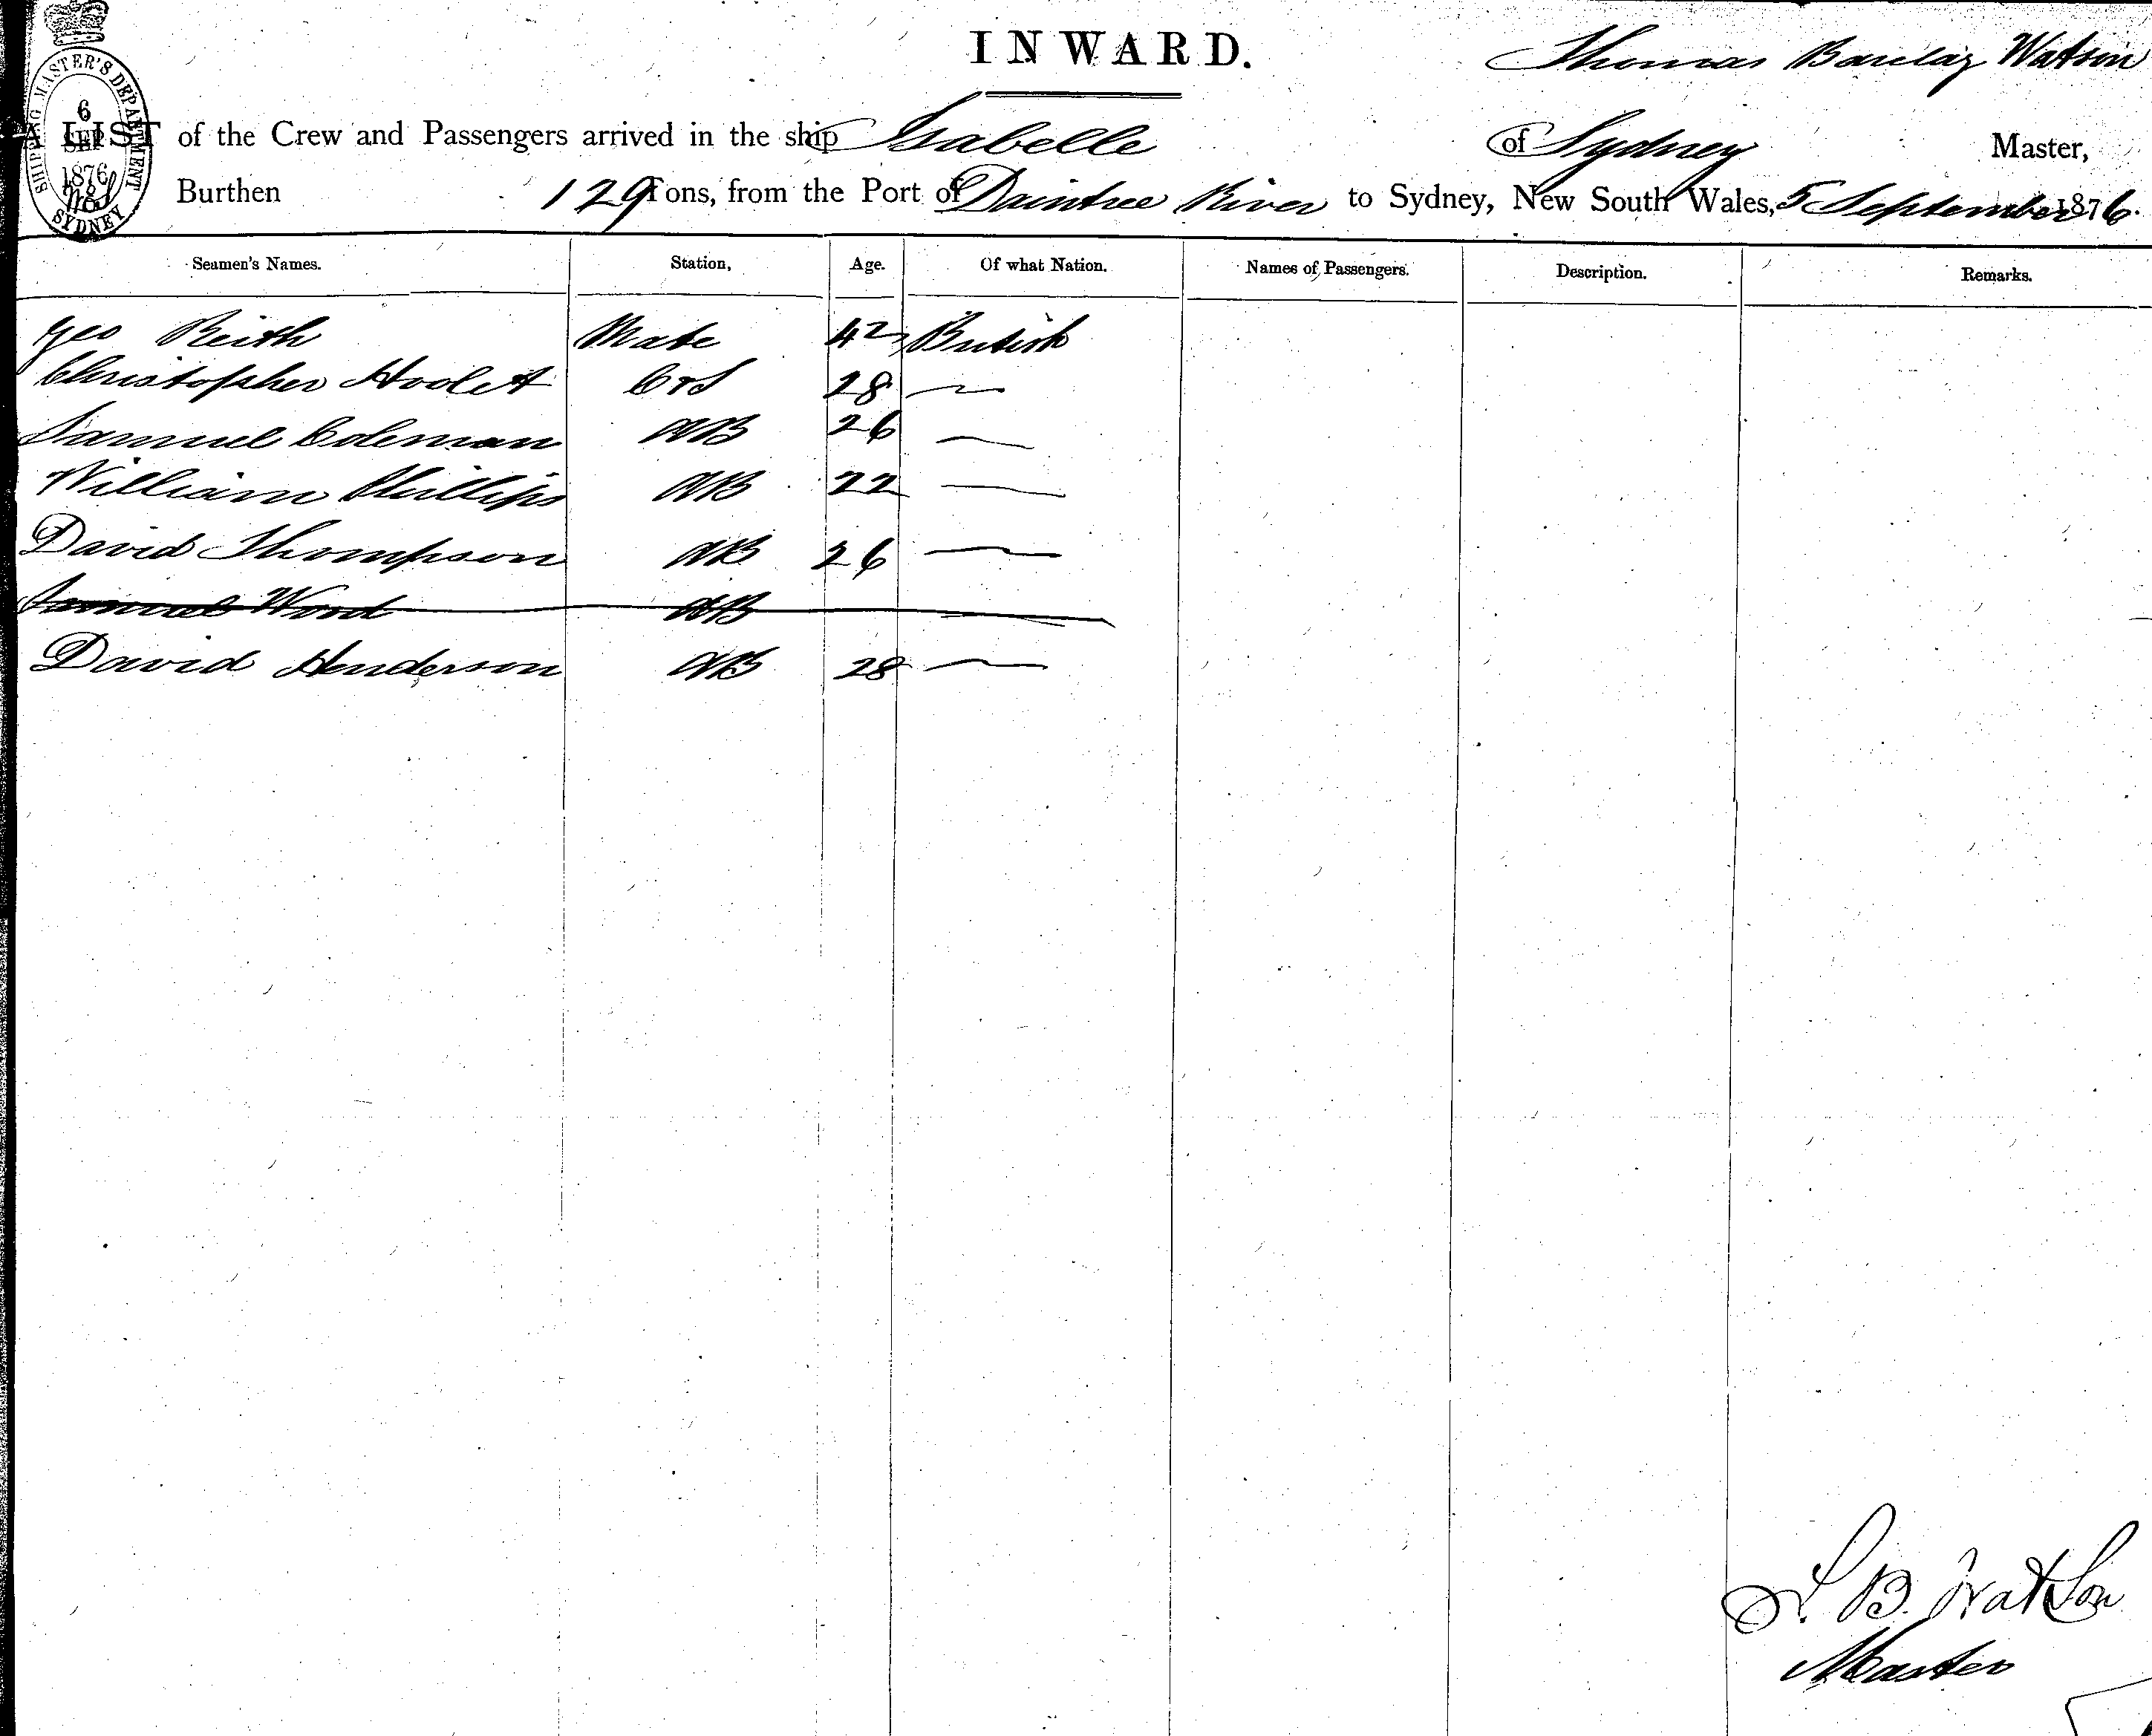 INWARD.
Thomas Barclay Watson
SHIPPING MASTER'S DEPARTMENT
6
SEP
1876
SYDNEY
A LIST of the Crew and Passengers arrived in the ship Isabelle of Sydney Master,
Burthen 129 Tons, from the Port of Daintree River to Sydney, New South Wales, 5 September 1876.
Seamen's Names. Station, Age. Of what Nation. Names of Passengers. Description. Remarks.
Geo Reith Mate 42 British
Christopher C & S 28
Samuel Coleman AB 26
William Phillips AB 22
David Thompson AB 26
Samuel Wood AB
David Henderson AB 28
T. B. Watson
Master